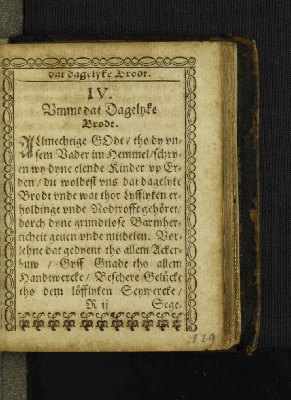 dat dagelyke Brodt.
IV.
Umme dat Dagelyke
Brodt.
ALlmechtige GOdt / tho dy un-
sem Vader im Hemmel / schry-
en wy dyne elende Kinder up Er-
den / du woldest uns dat dagelyke
Brodt unde wat thor Lyfflyken er-
holdinge unde Nodtrofft gehöret /
dorch dyne grundtlose Barmher-
ticheit geven unde midelen. Vor-
lehne dat gedyent tho allem Acker-
buw / Gyff Gnade tho allem
Handtwercke / Beschere Gelücke
tho dem löfflyken Seywercke /
R ij Sege-
129